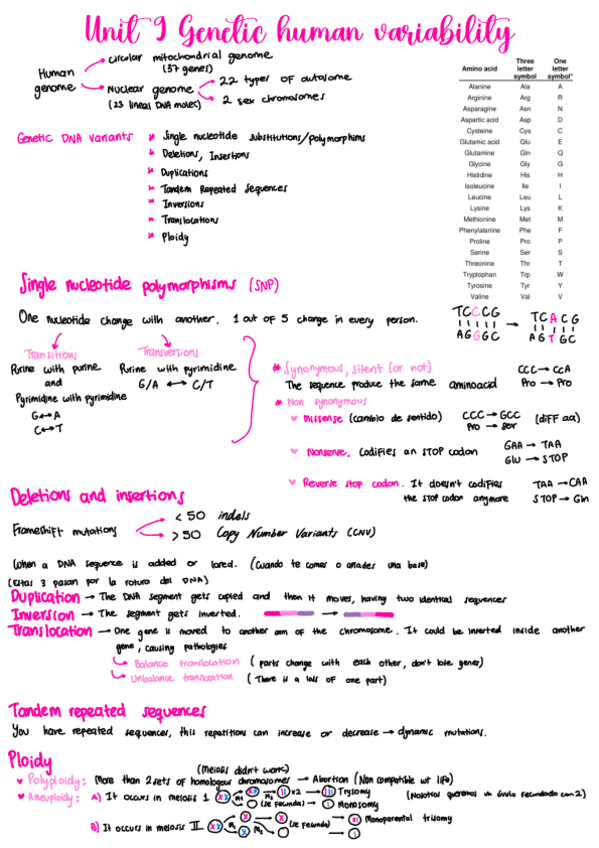 Unit 9 Genetic human variability
Human genome
circular mitochondrial genome
(37 genes)
Nuclear genome
(23 lineal DNA moles)
22 types of autosome
2 sex chromosomes
Amino acid Three letter symbol One letter symbol*
Alanine Ala A
Arginine Arg R
Asparagine Asn N
Aspartic acid Asp D
Cysteine Cys C
Glutamic acid Glu E
Glutamine Gln Q
Glycine Gly G
Histidine His H
Isoleucine Ile I
Leucine Leu L
Lysine Lys K
Methionine Met M
Phenylalanine Phe F
Proline Pro P
Serine Ser S
Threonine Thr T
Tryptophan Trp W
Tyrosine Tyr Y
Valine Val V
Genetic DNA variants
Single nucleotide substitutions/polymorphims
Deletions, Insertions
Duplications
Tandem Repeated Sequences
Inversions
Translocations
Ploidy
Single nucleotide polymorphisms (SNP)
One nucleotide change with another. 1 out of 5 change in every person.
TCCCG → TCACG
AGGGC AGTGC
Transitions
Purine with purine
and
Pyrimidine with pyrimidine
G↔A
C↔T
Transversions
Purine with pyrimidine
G/A ↔ C/T
* Synonymous, silent (or not)
The sequence produce the same aminoacid
CCC → CCA
Pro → Pro
* Non synonymous
Missense (cambio de sentido)
CCC → GCC (diFF aa)
Pro → Ser
Nonsense. Codifies an STOP codon
GAA → TAA
Glu → STOP
Reverse stop codon. It doesn't codifies
the STOP codon anymore
TAA → CAA
STOP → Gln
Deletions and insertions
Frameshift mutations
< 50 indels
> 50 Copy Number Variants (CNV)
When a DNA sequence is added or lored. (Cuando te comes o añades una base)
(Estas 3 pasan por la rotura del DNA)
Duplication → The DNA segment gets copied and then it moves, having two identical sequences
Inversion → The segment gets inverted.
Translocation → One gene is moved to another arm of the chromosome. It could be inverted inside another
gene, causing pathologies
Balance translocation (parts change with each other, don't lose genes)
Unbalance translocation (There is a loss of one part)
Tandem repeated sequences
You have repeated sequences, this repetitions can increase or decrease → dynamic mutations.
Ploidy
(Meiosis didn't work)
Polyploidy: More than 2 sets of homologous chromosomes → Abortion (Non compatible wt life)
Aneuploidy: A) It occurs in meiosis 1 M1 M2 x2 Trysomy
(se fecunda) → Monosomy
(Nosotros queremos un óvulo fecundado con 2)
B) It occurs in meiosis II M1 M2 (se fecunda) Monoparental trisomy